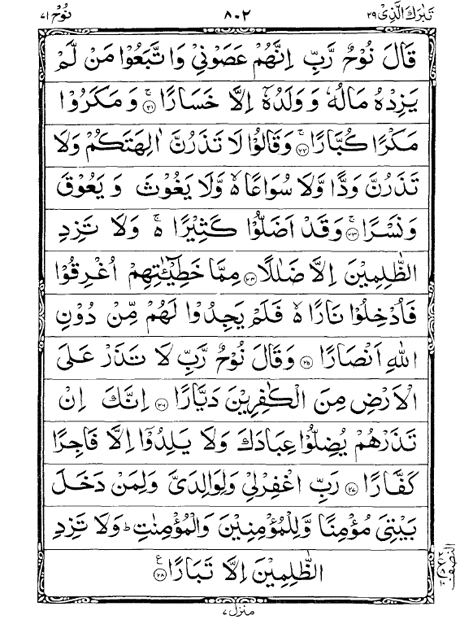 تَبٰرَكَ الَّذِیْ ٢٩ ٨٠٢ نُوْح ٧١
قَالَ نُوْحٌ رَّبِّ اِنَّهُمْ عَصَوْنِیْ وَاتَّبَعُوْا مَنْ لَّمْ
یَزِدْهُ مَالُهٗ وَوَلَدُهٗۤ اِلَّا خَسَارًا ۚ‏﴿۲۱﴾ وَمَكَرُوْا
مَكْرًا كُبَّارًا ۚ‏﴿۲۲﴾ وَقَالُوْا لَا تَذَرُنَّ اٰلِهَتَكُمْ وَلَا
تَذَرُنَّ وَدًّا وَّلَا سُوَاعًا ۙ۬ وَّلَا یَغُوْثَ وَیَعُوْقَ
وَنَسْرًا ۚ‏﴿۲۳﴾ وَقَدْ اَضَلُّوْا كَثِیْرًا ۬ۚ وَلَا تَزِدِ
الظّٰلِمِیْنَ اِلَّا ضَلٰلًا ﴿۲۴﴾ مِمَّا خَطِیْٓـٰٔتِهِمْ اُغْرِقُوْا
فَاُدْخِلُوْا نَارًا ۬ۙ فَلَمْ یَجِدُوْا لَهُمْ مِّنْ دُوْنِ
اللّٰهِ اَنْصَارًا ﴿۲۵﴾ وَقَالَ نُوْحٌ رَّبِّ لَا تَذَرْ عَلَی
الْاَرْضِ مِنَ الْكٰفِرِیْنَ دَیَّارًا ﴿۲۶﴾ اِنَّكَ اِنْ
تَذَرْهُمْ یُضِلُّوْا عِبَادَكَ وَلَا یَلِدُوْۤا اِلَّا فَاجِرًا
كَفَّارًا ﴿۲۷﴾ رَبِّ اغْفِرْلِیْ وَلِوَالِدَیَّ وَلِمَنْ دَخَلَ
بَیْتِیَ مُؤْمِنًا وَّلِلْمُؤْمِنِیْنَ وَالْمُؤْمِنٰتِ ؕ وَلَا تَزِدِ
الظّٰلِمِیْنَ اِلَّا تَبَارًا ﴿۲۸﴾ ع
النصف
منزل ٧